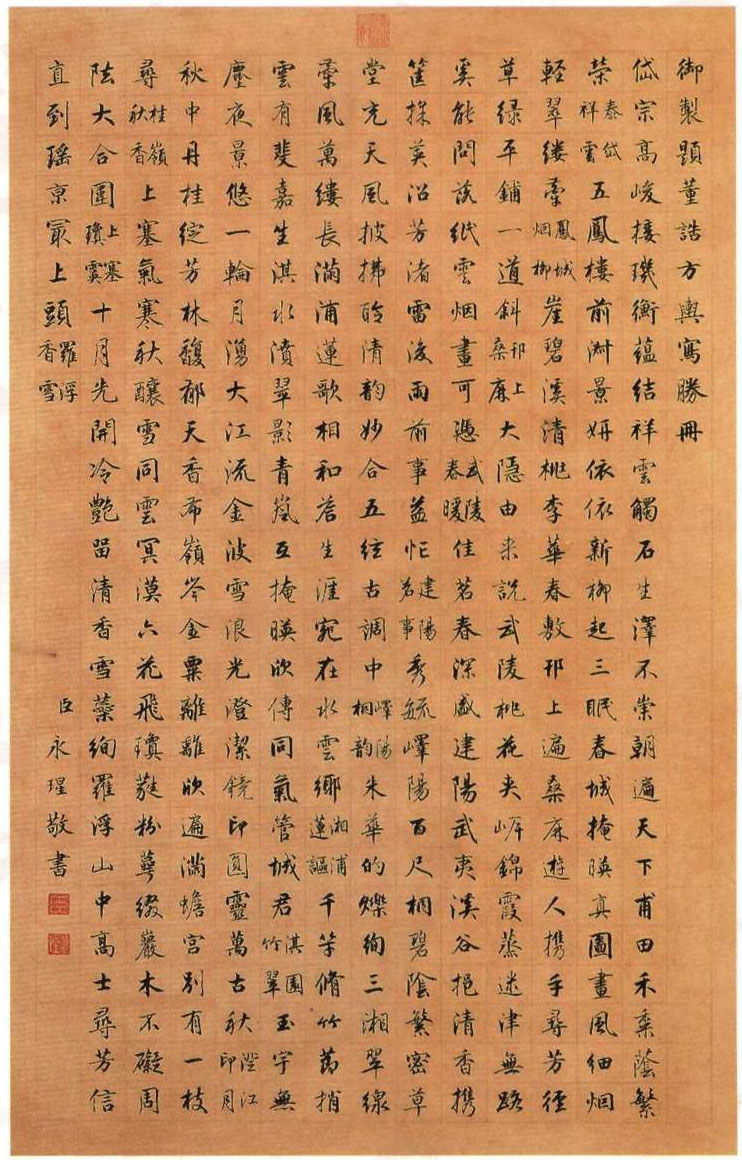 御製題董誥方輿寫勝冊
岱宗高峻接璣衡蘊結祥雲觸石生澤不崇朝遍天下甫田禾黍蔭繁
榮泰岱祥雲五鳳樓前淑景妍依依新柳起三眠春城掩暎真圖畫風細烟
輕翠縷牽鳳城烟柳崖碧溪清桃李華春敷邗上遍桑麻遊人携手尋芳徑
草綠平鋪一道斜邗上桑麻大隱由來說武陵桃花夾岸錦霞蒸迷津無路
奚能問落紙雲烟畫可憑武陵春暖佳茗春深盛建陽武夷溪谷挹清香携
筐採英沿芳渚雷後雨前事益忙建陽茗事秀毓嶧陽百尺桐碧陰繁密草
堂充天風披拂聆清韵妙合五絃古調中嶧陽桐韵朱華的爍絢三湘翠線
牽風萬縷長滿浦蓮歌相和荅生涯宛在水雲鄉湘浦蓮謳千竿脩竹蔚捎
雲有斐嘉生淇水濆翠影青嵐互掩暎欣傳同氣管城君淇園竹翠玉宇無
塵夜景悠一輪月湧大江流金波雪浪光澄潔鏡印圓靈萬古秋澄江印月
秋中丹桂綻芳林馥郁天香布嶺岑金粟離離欣遍滿蟾宮別有一枝
尋桂嶺秋香上塞氣寒秋釀雪同雲冥漠六花飛瓊蕤粉萼綴巖木不礙周
阹大合圍上塞瓊霙十月光開冷艷畱清香雪蘂絢羅浮山中高士尋芳信
直到瑤京冣上頭羅浮香雪
臣永瑆敬書